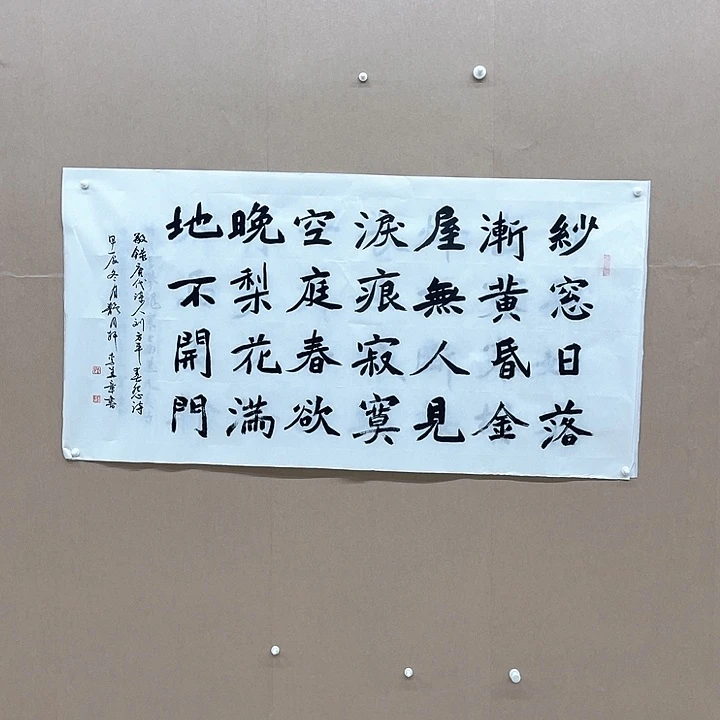 紗窓日落
漸黃昏金
屋無人見
淚痕寂寞
空庭春欲
晚梨花滿
地不開門
敬錄唐代詩人刘方平春怨詩
甲辰冬月
書